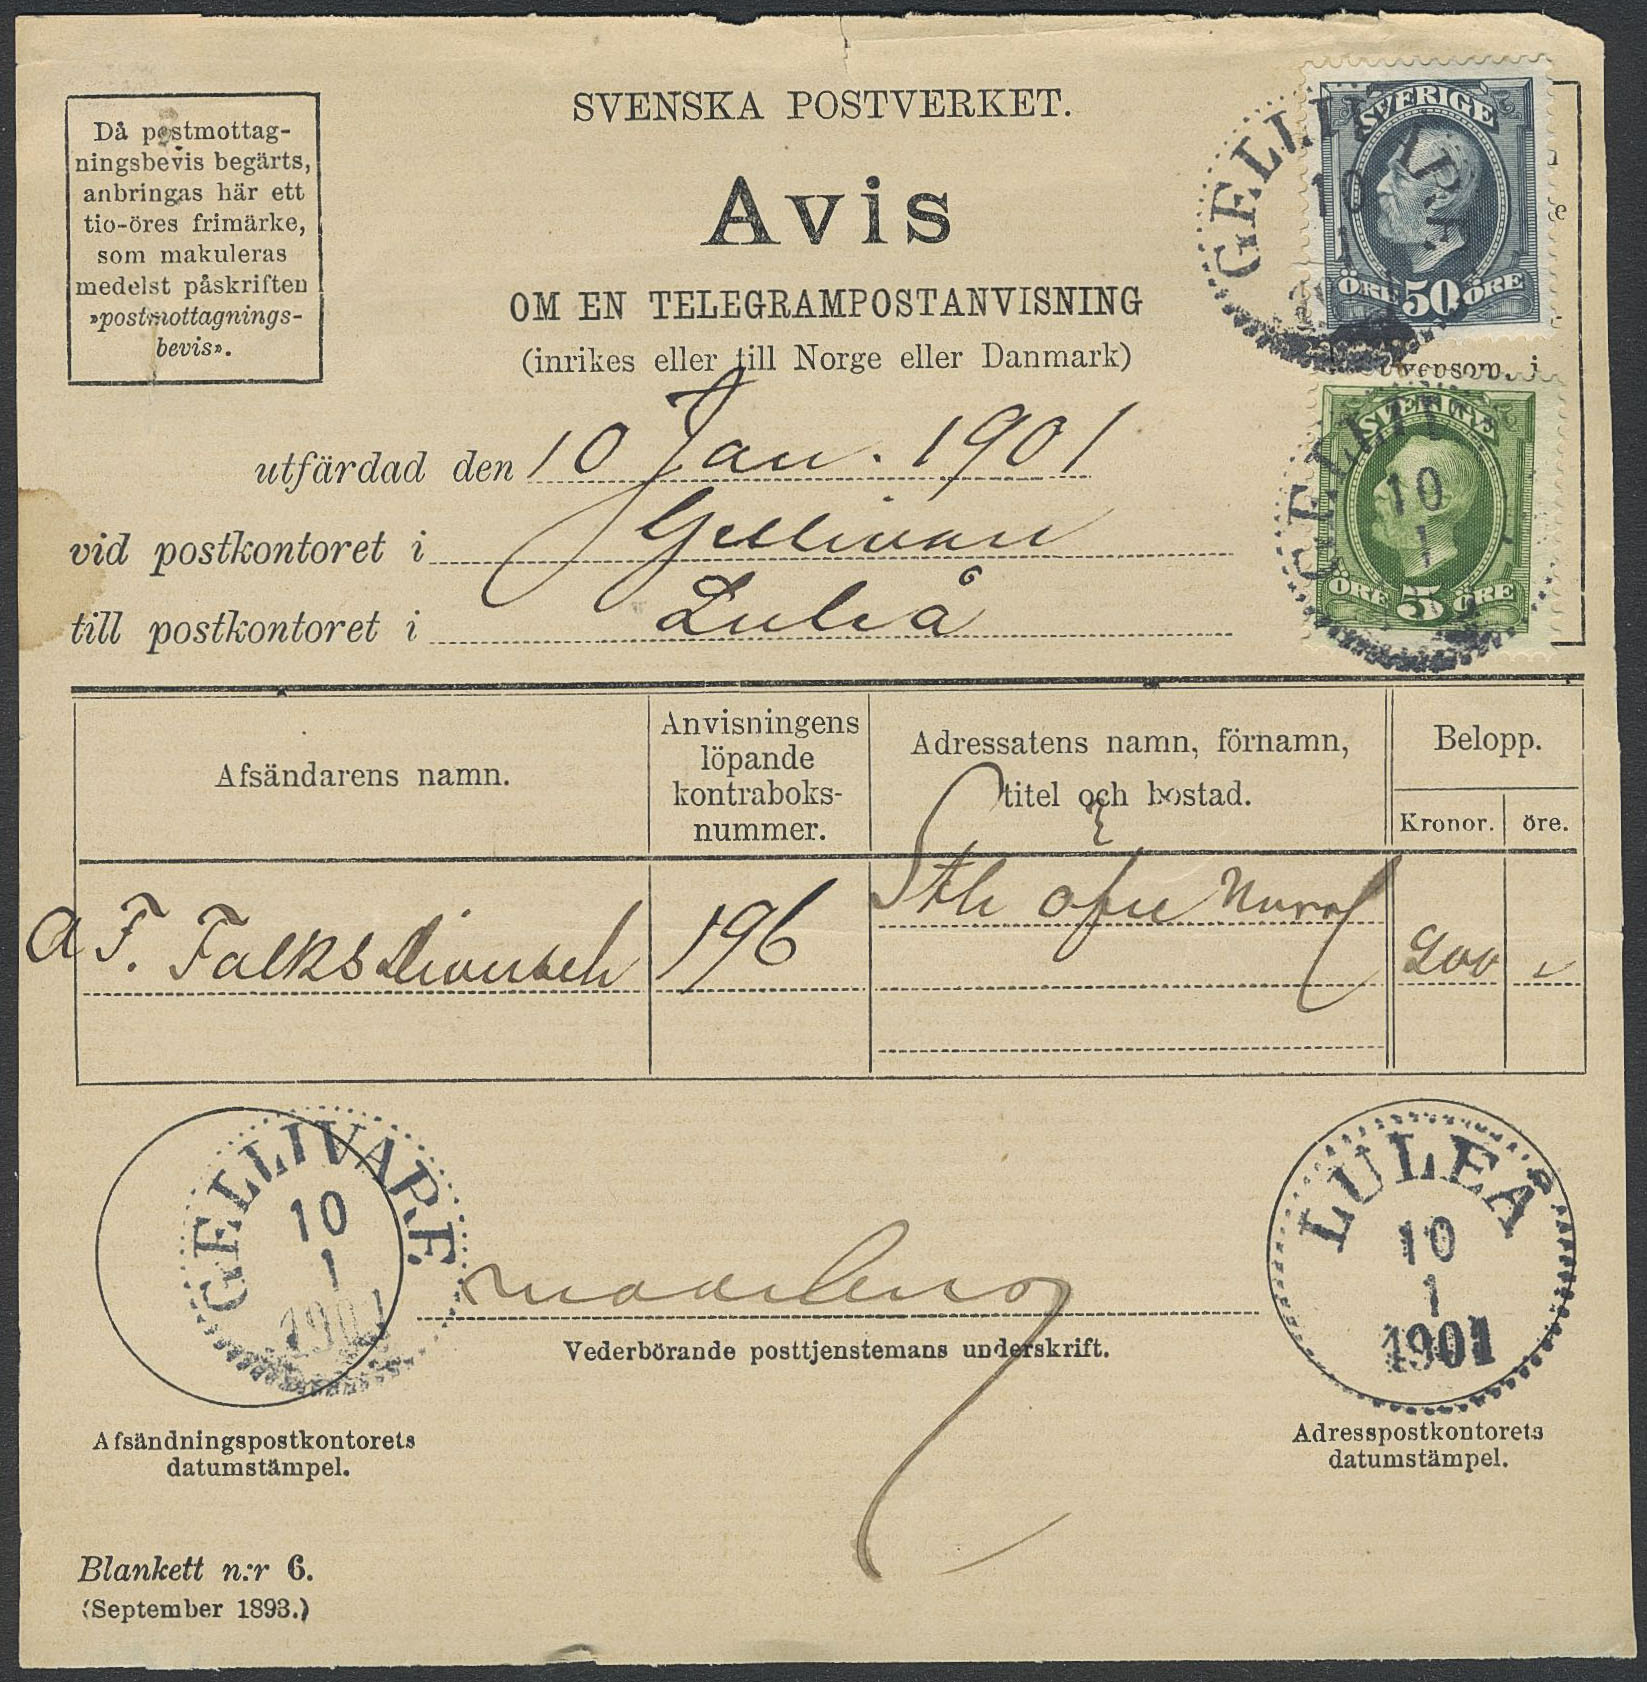 Då postmottag-
ningsbevis begärts,
anbringas här ett
tio-öres frimärke,
som makuleras
medelst påskriften
»postmottagnings-
bevis».
SVENSKA POSTVERKET.
Avis
OM EN TELEGRAMPOSTANVISNING
(inrikes eller till Norge eller Danmark)
SVERIGE
ÖRE 50 ÖRE
GELLIVARE
10
1
ÖRE 5 ÖRE
10
1
utfärdad den 10 Jan. 1901
vid postkontoret i Gellivare
till postkontoret i Luleå
Afsändarens namn.
Anvisningens
löpande
kontraboks-
nummer.
Adressatens namn, förnamn,
titel och bostad.
Belopp.
Kronor. öre.
a F. Falks
196
200
GELLIVARE
10
1
1901
LULEÅ
10
1
1901
Vederbörande posttjenstemans underskrift.
Afsändningspostkontorets
datumstämpel.
Adresspostkontorets
datumstämpel.
Blankett n:r 6.
(September 1893.)